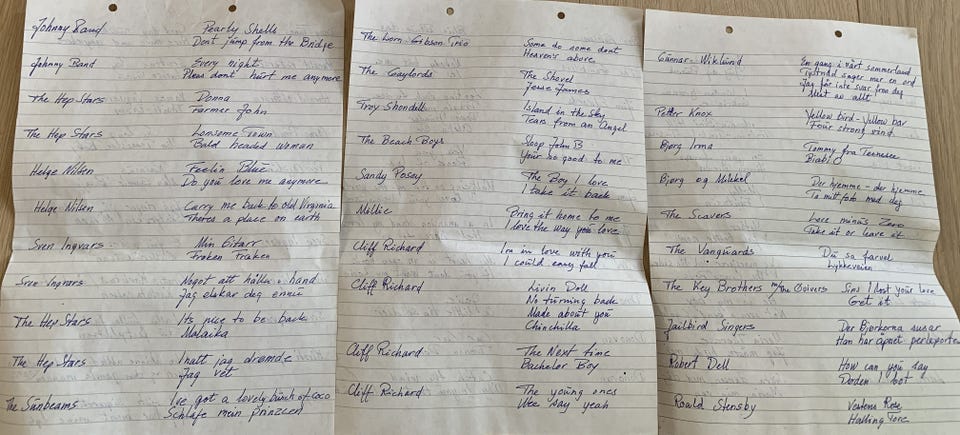 Johnny Band Pearly Shells
Dont jump from the Bridge
Johnny Band Every night
Pleas dont hurt me anymore
The Hep Stars Donna
Farmer John
The Hep Stars Lonsome Town
Bald headed woman
Helge Nilsen Feelin Blue
Do you love me anymore
Helge Nilsen Carry me back to old Virginia
Theres a place on earth
Sven Ingvars Min Gitarr
Fröken Fräken
Sven Ingvars Något att hålla i hand
Jag elskar deg ennu
The Hep Stars Its nice to be back
Malaika
The Hep Stars Inatt jag drømde
Jag vet
The Sunbeams I've got a lovely bunch of Coco
Schlafe mein Prinzcen
The Lorn Gibson Trio Some do some dont
Heaven's above
The Gaylords The Shovel
Jesse James
Troy Shondell Island in the Sky
Tears from an Angel
The Beach Boys Sloop John B
Your so good to me
Sandy Posey The Boy I love
I take it back
Millie Bring it home to me
I love the way you love
Cliff Richard I'm in love with you
I could easy fall
Cliff Richard Livin Doll
No turning back
Made about you
Chinchilla
Cliff Richard The Next time
Bachelor Boy
Cliff Richard The young ones
Wee say yeah
Gunnar Wiklund En gang i vårt sommerland
mer en ord
Jag får inte svar fra deg
Mest av allt
Petter Knox Yellow bird - yellow bar
Four strong vind
Bjørg Irma Tommy fra Tennesee
Biabio
Bjørg og Mikkel Der hjemme - der hjemme
To mitt foto med deg
The Scavers Love minus Zero
Take it or leave it
The Vanguards Du sa farvel
Lykkeveien
The Key Brothers m/the Quivers Sins I lost your love
Get it
Jailbird Singers Der Bjørkorna susar
Han har öpnet perleporten
Robert Dell How can you say
Døden
Roald Stensby Vestens Rose
Halling Tore